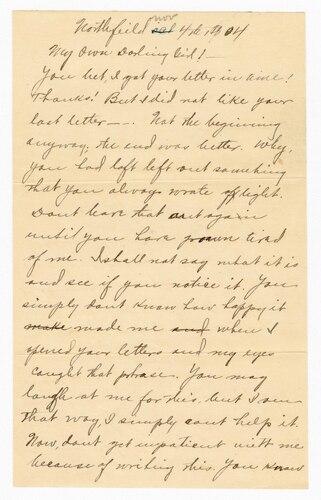 Northfield Nov 4th 1904
My Own Darling Girl!—
You bet, I got your letter in time!
Thanks! But I did not like your
last letter—. Not the beginning
anyway, the end was better. Why,
you had left left out something
that you always wrote
Dont leave that out again
until you have grown tired
of me. I shall not say what it is
and see if you notice it. You
simply dont know how happy it
make made me and when I
opened your letters and my eyes
caught that phrase. You may
laugh at me for this, but I am
that way, I simply cant help it.
Now, dont get impatient with me
because of writing this. You know